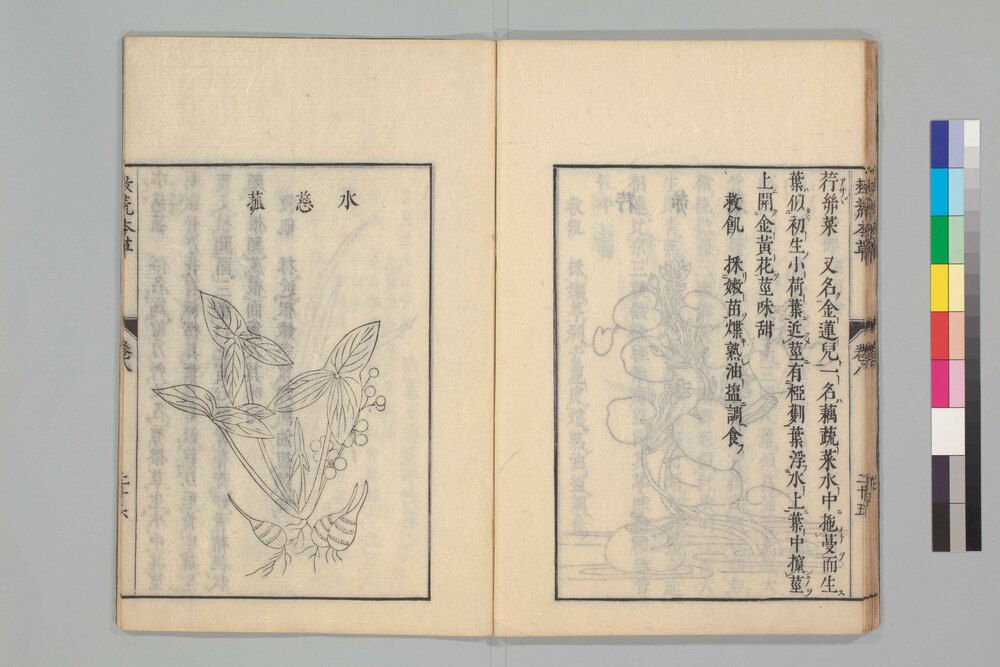 荇絲菜 又名金蓮兒一名藕蔬菜水中拖蔓而生
葉似初生小荷葉近莖有椏劐葉浮水上葉中攛莖
上開金黃花莖味甜
救飢 採嫩苗煠熟油塩調食
卷八
二十五
水慈菰
救荒本草
卷八
二十六